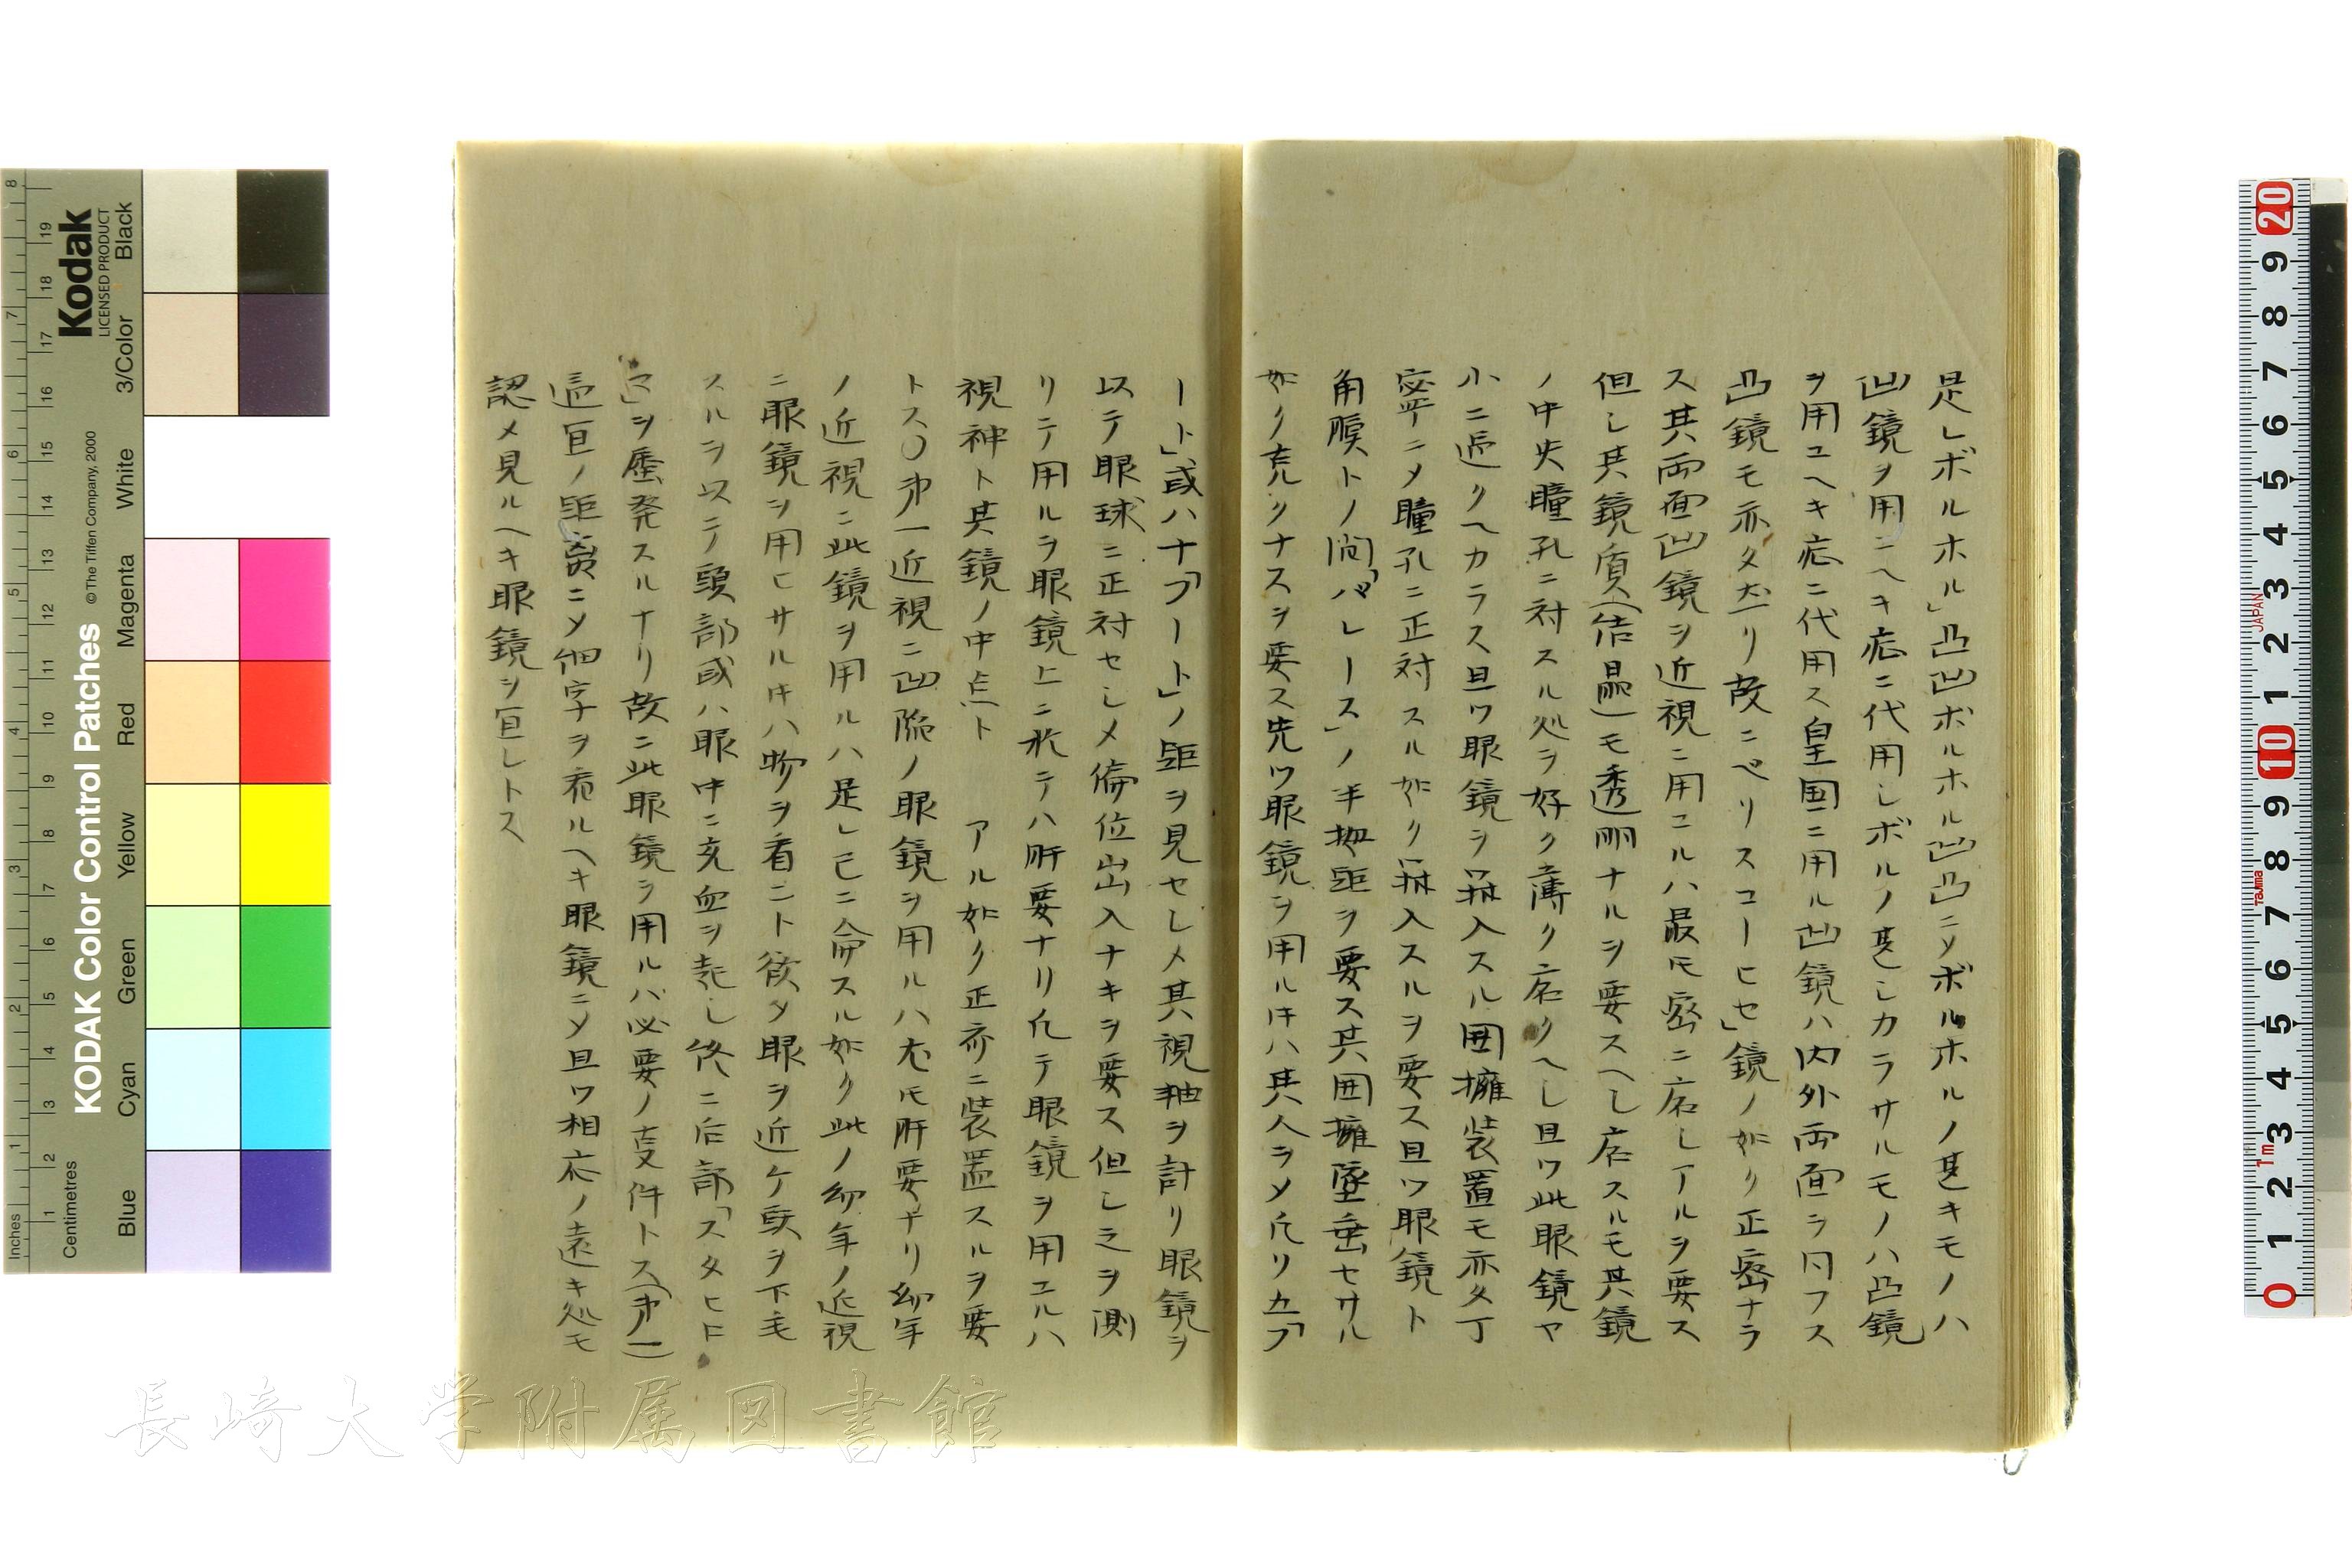 是レボルホル」凸凹ボルホル凹凸ニメボルホルノ甚キモノハ
凹鏡ヲ用ユヘキ症ニ代用シボルノ甚シカラサルモノハ凸鏡
ヲ用ユヘキ症ニ代用ス皇国ニ用ル凹鏡ハ内外両面ヲ凹フス
凸鏡モ亦タ然リ故ニペリスコーヒセ」鏡ノ如ク正密ナラ
ス其両面凹鏡ヲ近視ニ用ユルハ最モ密ニ居シアルヲ要ス
但し其鏡質(結晶)モ透明ナルヲ要スヘし居スルモ其鏡
ノ中央瞳孔ニ対スル処ヲ好ク薄ク居クヘし且ツ此眼鏡ヤ
小ニ過クヘカラス且ツ眼鏡ヲ挿入スル囲擁装置モ亦タ丁
寧ニメ瞳孔ニ正対スル如ク挿入スルヲ要ス且ツ眼鏡ト
角膜トノ間「パレース」ノ半拇距ヲ要ス其囲擁墜垂セサル
如ク充クナスヲ要ス先ツ眼鏡ヲ用ルキハ其人ヲメ凡リ五「フ
ート」或ハ十「フート」ノ距ヲ見セレメ其視軸ヲ計リ眼鏡ヲ
以テ眼球ニ正対セしメ偏位出入ナキヲ要ス但し之ヲ測
リテ用ルヲ眼鏡上ニ於テハ肝要ナリ凡テ眼鏡ヲ用ユルハ
視神ト其鏡ノ中点ト アル如ク正亦ニ装置スルヲ要
トス〇第一近視ニ凹陥ノ眼鏡ヲ用ルハ尤モ肝要ナリ幼年
ノ近視ニ此鏡ヲ用ルハ是レ已ニ命スル如ク此ノ幼年ノ近視
ニ眼鏡ヲ用ヒサルキハ物ヲ看ント欲メ眼ヲ近ケ頭ヲ下垂
スルヲ以テ頭部或ハ眼中ニ充血ヲ起し終ニ后部「スタヒロ
マ」ヲ歴発スルナリ故ニ此眼鏡ヲ用ルハ必要ノ支件トス(第一)
適宜ノ距離ニメ細字ヲ看ルヘキ眼鏡ニメ且ツ相応ノ遠キ処モ
認メ見ルヘキ眼鏡ヲ宜しトス
KODAK Color Control Patches
© The Tiffen Company, 2000
Kodak
LICENSED PRODUCT
Inches
Centimetres
Blue Cyan Green Yellow Red Magenta White 3/Color Black
JAPAN
Tajima
1m
長崎大学附属図書館